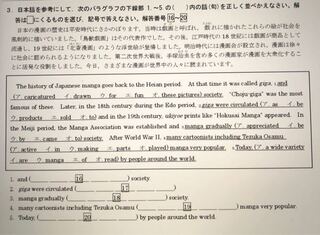 3. 日本語を参考にして、次のパラグラフの下線部 1. ~5. の ( ) 内の語(句)を正しく並べかえなさい。解
答は□にくるものを選び、記号で答えなさい。解答番号 16~20
日本の漫画の歴史は平安時代にさかのぼります。当時は戯画と呼ばれ、戯れに描かれたこれらの絵が社会を
風刺的に描いていました。「鳥獣戯画」はその代表作でした。その後、江戸時代の18世紀には戯画が商品として
流通し、19世紀には「北斎漫画」のような浮世絵が登場しました。明治時代には漫画会が設立され、漫画は徐々
に社会に認められるようになりました。第二次世界大戦後、手塚治虫を含め多くの漫画家が漫画を大衆化するこ
とに活発な役割をしました。今日、さまざまな漫画が世界中の人々に読まれています。
The history of Japanese manga goes back to the Heian period. At that time it was called giga, 1. and
(ア. caricatured イ. drawn ウ. for エ. fun オ. these pictures) society. "Choju-giga" was the most
famous of these. Later, in the 18th century during the Edo period, 2. giga were circulated (ア. as イ. be
ウ. products エ. sold オ. to) and in the 19th century, ukiyoe prints like "Hokusai Manga" appeared. In
the Meiji period, the Manga Association was established and 3. manga gradually (ア. appreciated イ. be
ウ. by エ. came オ. to) society. After World War II, 4. many cartoonists including Tezuka Osamu
(ア. active イ. in ウ. making エ. parts オ. played) manga very popular. 5. Today, (ア. a wide variety
イ. are ウ. manga エ. of オ. read) by people around the world.
1. and ( 16 ) society.
2. giga were circulated ( 17 )
3. manga gradually ( 18 ) society.
4. many cartoonists including Tezuka Osamu ( 19 ) manga very popular.
5. Today, ( 20 ) by people around the world.